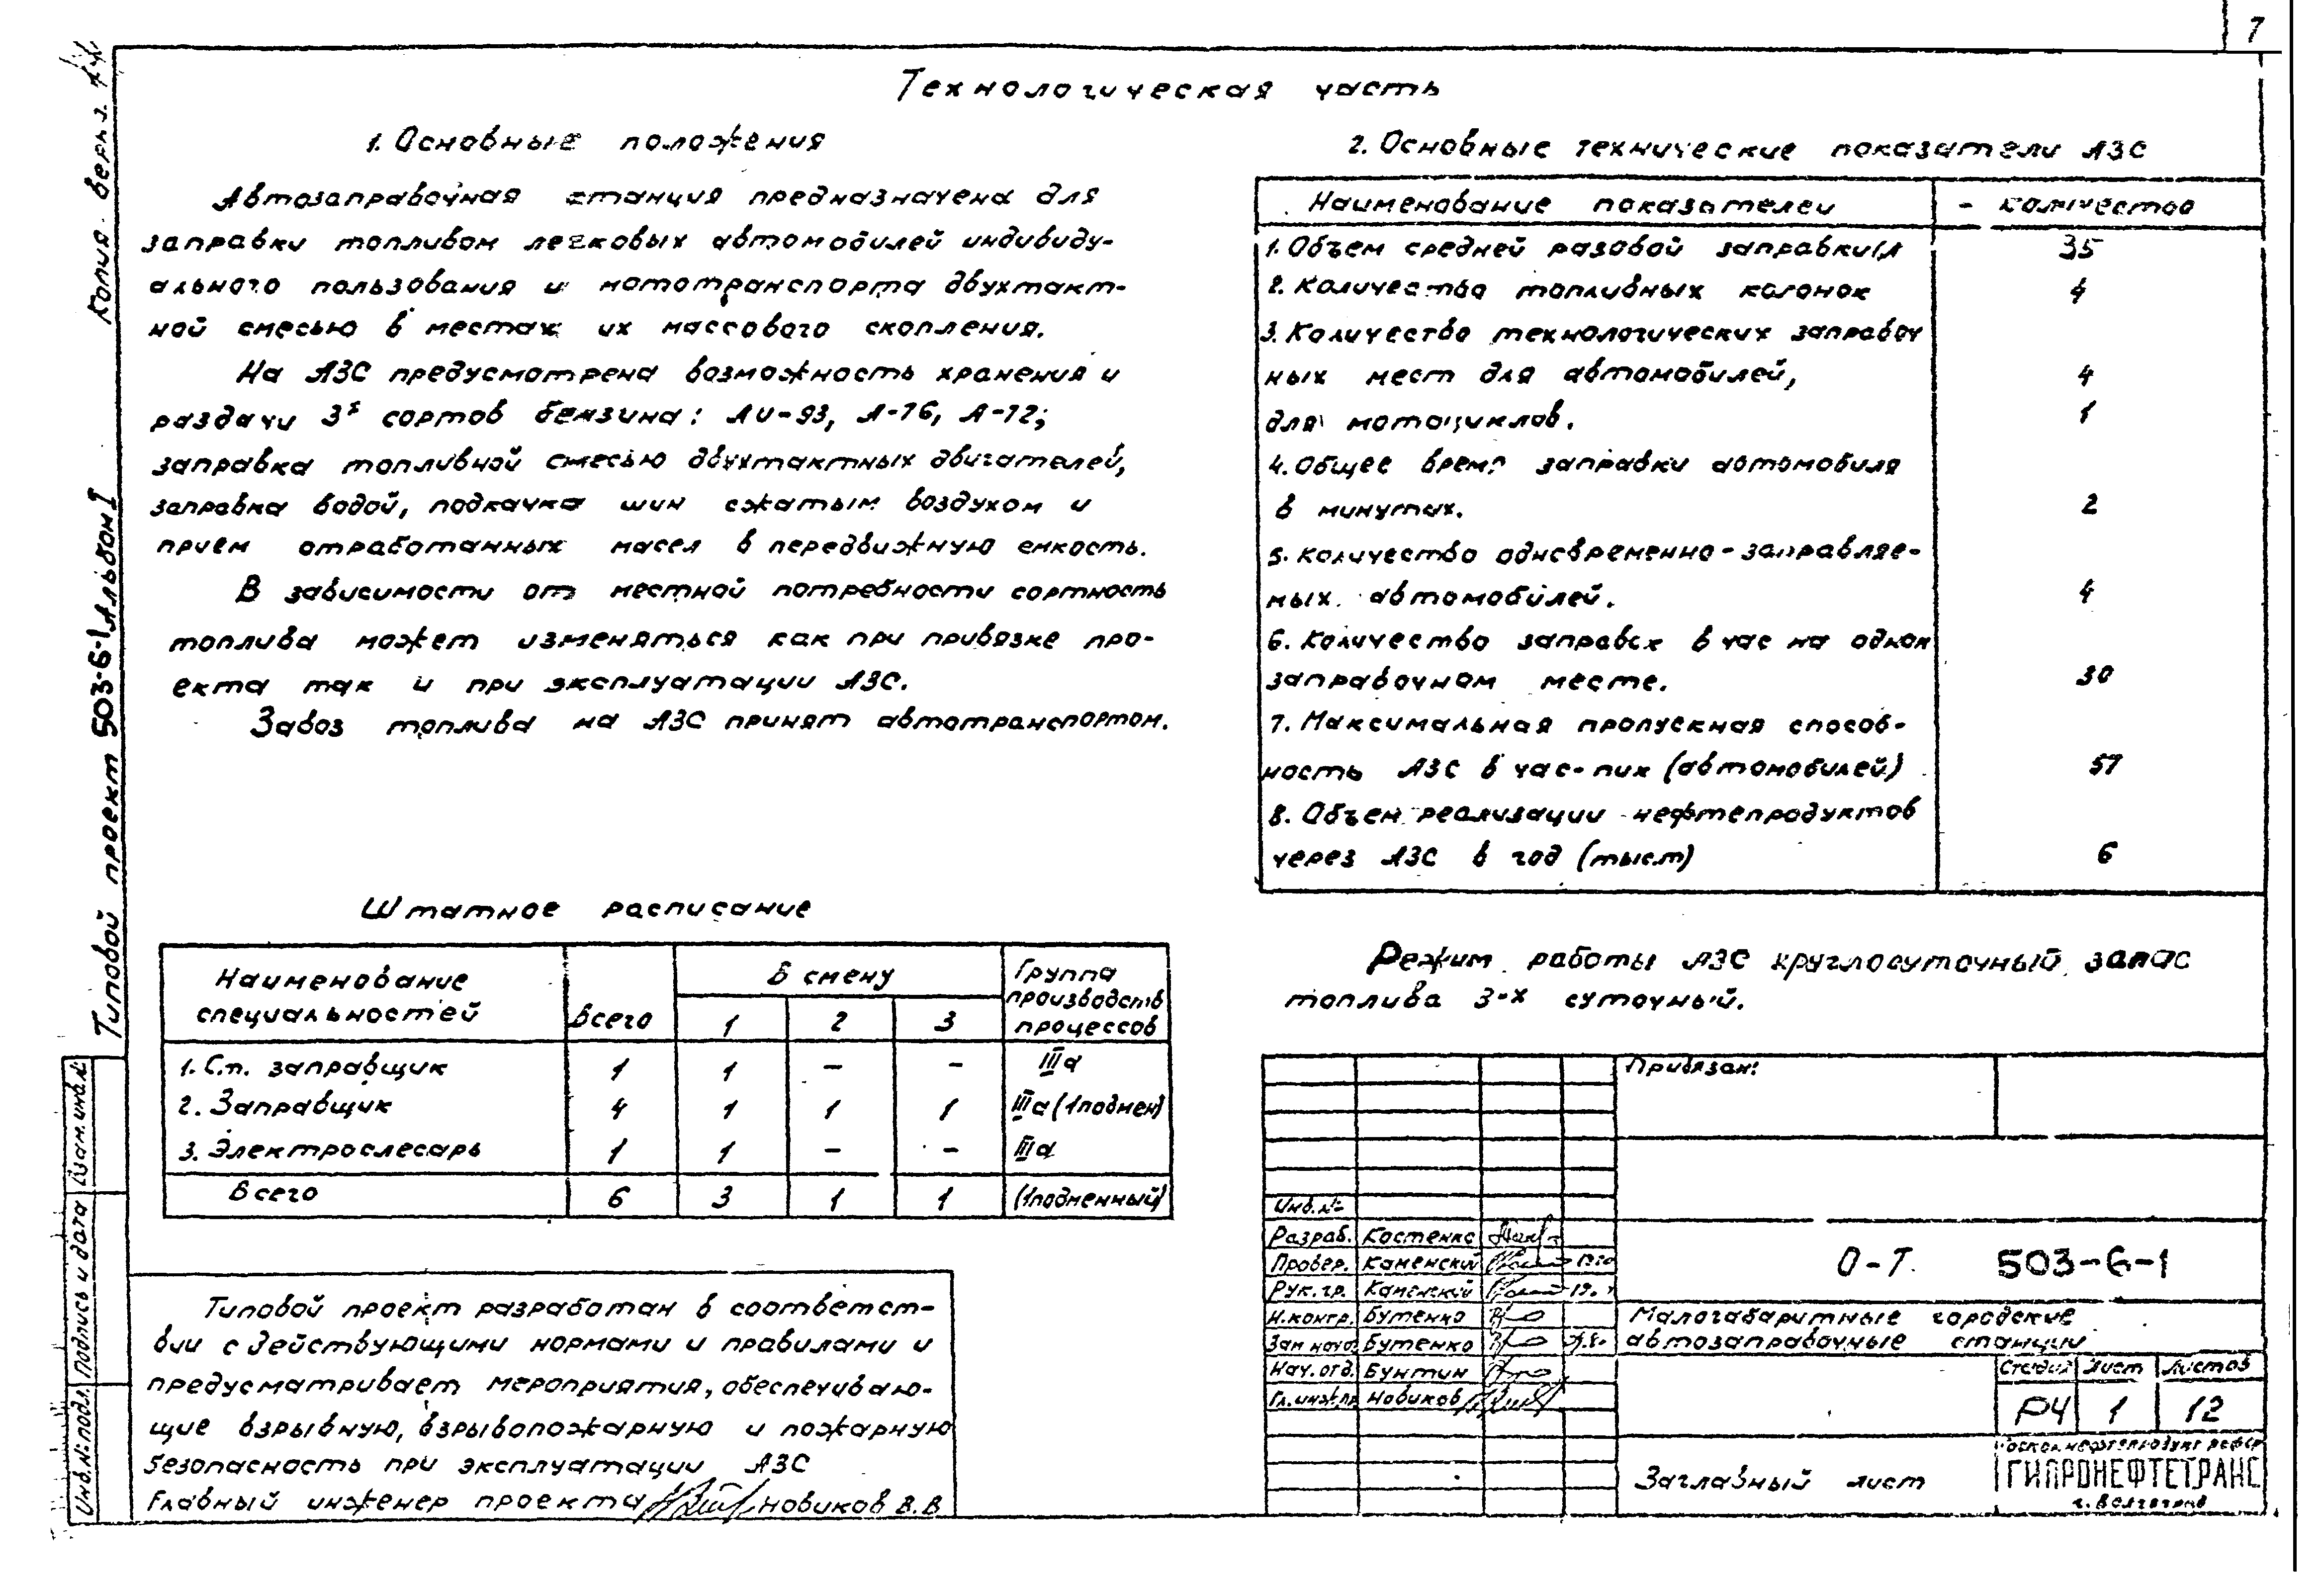 7
Копия верна
Типовой проект 503-6-1 Альбом I
Технологическая часть
1. Основные положения
Автозаправочная станция предназначена для
заправки топливом легковых автомобилей индивиду-
ального пользования и мототранспорта двухтакт-
ной смесью в местах их массового скопления.
На АЗС предусмотрена возможность хранения и
раздачи 3х сортов бензина: АИ-93, А-76, А-72;
заправка топливной смесью двухтактных двигателей,
заправка водой, подкачка шин сжатым воздухом и
прием отработанных масел в передвижную емкость.
В зависимости от местной потребности сортность
топлива может изменяться как при привязке про-
екта так и при эксплуатации АЗС.
Завоз топлива на АЗС принят автотранспортом.
Штатное расписание
Наименование специальностей Всего В смену Группа производств процессов
1 2 3
1. Ст. заправщик 1 1 – – IIIа
2. Заправщик 4 1 1 1 IIIа (1 подмен)
3. Электрослесарь 1 1 – – IIIа
Всего 6 3 1 1 (1подменный)
Типовой проект разработан в соответст-
вии с действующими нормами и правилами и
предусматривает мероприятия, обеспечиваю-
щие взрывную, взрывопожарную и пожарную
безопасность при эксплуатации АЗС
Главный инженер проекта Новиков В.В
2. Основные технические показатели АЗС
Наименование показателей - количество
1. Объем средней разовой заправки, л 35
2. Количество топливных колонок 4
3. Количество технологических заправоч
ных мест для автомобилей, 4
для мотоциклов. 1
4. Общее время заправки автомобиля
в минутах. 2
5. Количество одновременно-заправляе-
мых автомобилей. 4
6. Количество заправок в час на одном
заправочном месте. 30
7. Максимальная пропускная способ-
ность АЗС в час-пик (автомобилей) 57
8. Объем реализации нефтепродуктов
через АЗС в год (тыс.т) 6
Режим работы АЗС круглосуточный запас
топлива 3-х суточный.
Привязан:
Инв.№
Разраб. Костенко
Провер. Каменский
Рук.гр. Каменский
Н.контр. Бутенко
Зам нач. Бутенко
Нач.отд. Бунтин
Гл.инж.пр Новиков
О-Т. 503-6-1
Малогабаритные городские
автозаправочные станции
Стадия Лист Листов
РЧ 1 12
Заглавный лист
Госкомнефтепродукт РСФСР
ГИПРОНЕФТЕТРАНС
г. Волгоград
Инв.№подл. Подпись и дата Взам.инв.№